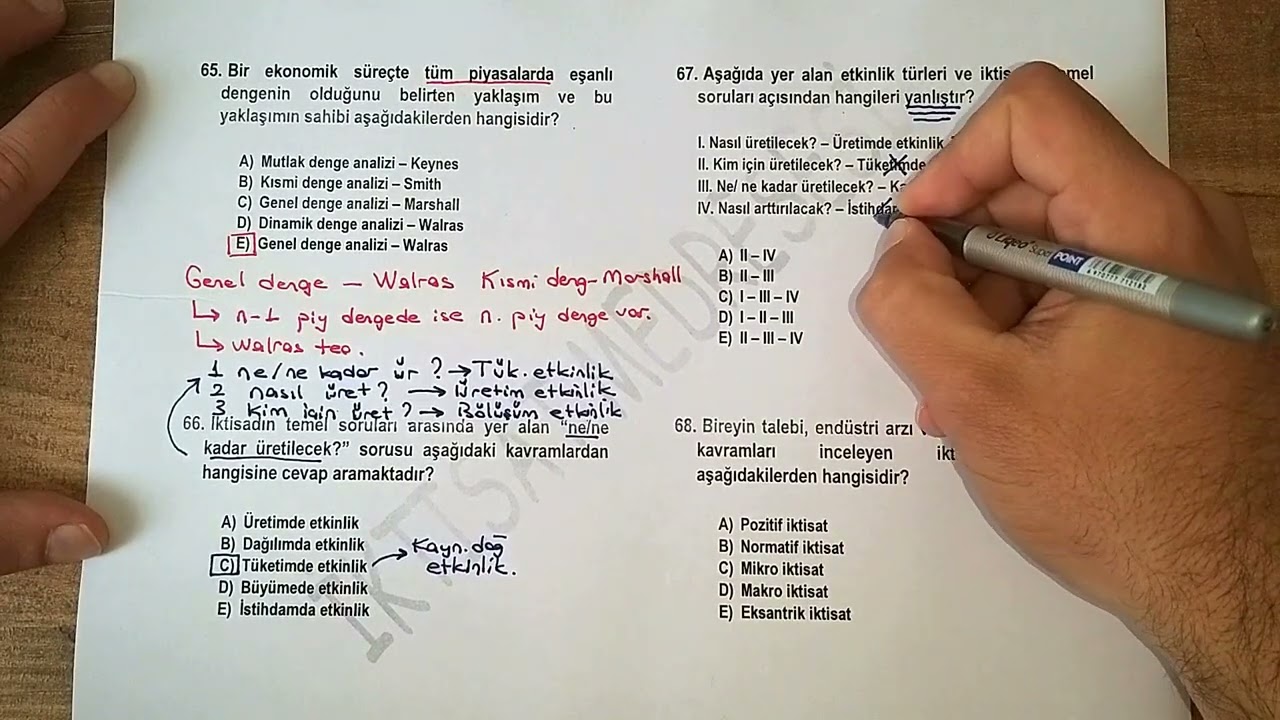 65. Bir ekonomik süreçte tüm piyasalarda eşanlı
dengenin olduğunu belirten yaklaşım ve bu
yaklaşımın sahibi aşağıdakilerden hangisidir?
A) Mutlak denge analizi – Keynes
B) Kısmi denge analizi – Smith
C) Genel denge analizi – Marshall
D) Dinamik denge analizi – Walras
E) Genel denge analizi – Walras
Genel denge – Walras Kısmi deng-Marshall
↳ n-1 piy dengede ise n. piy denge var.
↳ Walras teo.
1 ne/ne kadar ür ? → Tük. etkinlik
2 nasıl üret ? → Üretim etkinlik
3 Kim için üret ? → Bölüşüm etkinlik
66. İktisadın temel soruları arasında yer alan “ne/ne
kadar üretilecek?” sorusu aşağıdaki kavramlardan
hangisine cevap aramaktadır?
A) Üretimde etkinlik
B) Dağılımda etkinlik
C) Tüketimde etkinlik → Kayn. dağ
etkinlik.
D) Büyümede etkinlik
E) İstihdamda etkinlik
67. Aşağıda yer alan etkinlik türleri ve
soruları açısından hangileri yanlıştır?
I. Nasıl üretilecek? – Üretimde etkinlik
II. Kim için üretilecek? – Tüketimde
III. Ne/ ne kadar üretilecek? –
IV. Nasıl arttırılacak? –
A) II – IV
B) II – III
C) I – III – IV
D) I – II – III
E) II – III – IV
68. Bireyin talebi, endüstri arzı
kavramları inceleyen
aşağıdakilerden hangisidir?
A) Pozitif iktisat
B) Normatif iktisat
C) Mikro iktisat
D) Makro iktisat
E) Eksantrik iktisat